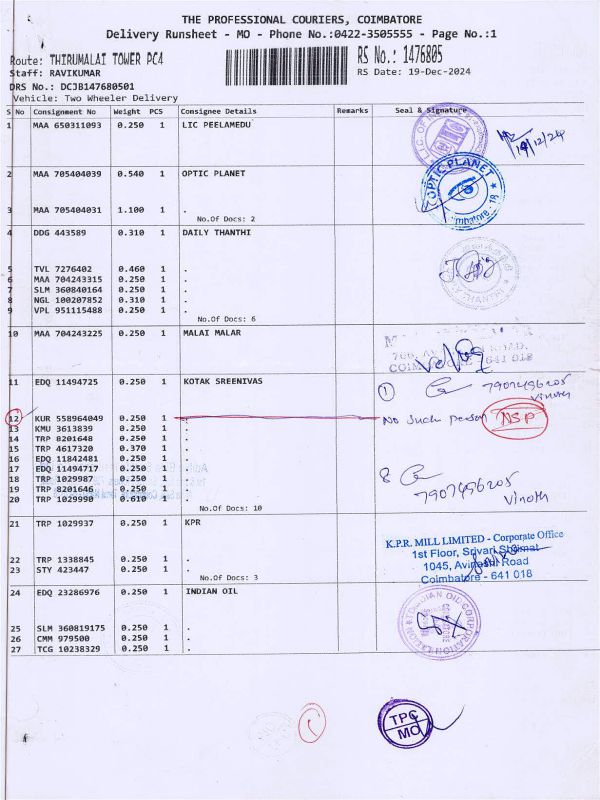 THE PROFESSIONAL COURIERS, COIMBATORE
Delivery Runsheet - MO - Phone No.:0422-3505555 - Page No.:1
Route: THIRUMALAI TOWER PC4
RS No.: 1476805
Staff: RAVIKUMAR
RS Date: 19-Dec-2024
DRS No.: DCJB147680501
Vehicle: Two Wheeler Delivery
S No Consignment No Weight PCS Consignee Details Remarks Seal & Signature
1 MAA 650311093 0.250 1 LIC PEELAMEDU
19/12/24
2 MAA 705404039 0.540 1 OPTIC PLANET
OPTIC PLANET
Coimbatore - 18
3 MAA 705404031 1.100 1 .
No.Of Docs: 2
4 DDG 443589 0.310 1 DAILY THANTHI
5 TVL 7276402 0.460 1 .
6 MAA 704243315 0.250 1 .
7 SLM 360840164 0.250 1 .
8 NGL 100207852 0.310 1 .
9 VPL 951115488 0.250 1 .
No.Of Docs: 6
10 MAA 704243225 0.250 1 MALAI MALAR
641 018
11 EDQ 11494725 0.250 1 KOTAK SREENIVAS
1 7907496205
Vinoth
12 KUR 558964049 0.250 1 .
No Such person NSP
13 KMU 3613839 0.250 1 .
14 TRP 8201648 0.250 1 .
15 TRP 4617320 0.370 1 .
16 EDQ 11842481 0.250 1 .
17 EDQ 11494717 0.250 1 .
18 TRP 1029987 0.250 1 .
19 TRP 8201646 0.250 1 .
20 TRP 1029990 0.610 1 .
8 7907496205
Vinoth
No.Of Docs: 10
21 TRP 1029937 0.250 1 KPR
K.P.R. MILL LIMITED - Corporate Office
1st Floor, Srivari Shrimat
1045, Avinashi Road
Coimbatore - 641 018
22 TRP 1338845 0.250 1 .
23 STY 423447 0.250 1 .
No.Of Docs: 3
24 EDQ 23286976 0.250 1 INDIAN OIL
INDIAN OIL CORPORATION
25 SLM 360819175 0.250 1 .
26 CMM 979500 0.250 1 .
27 TCG 10238329 0.250 1 .
TPC
MO